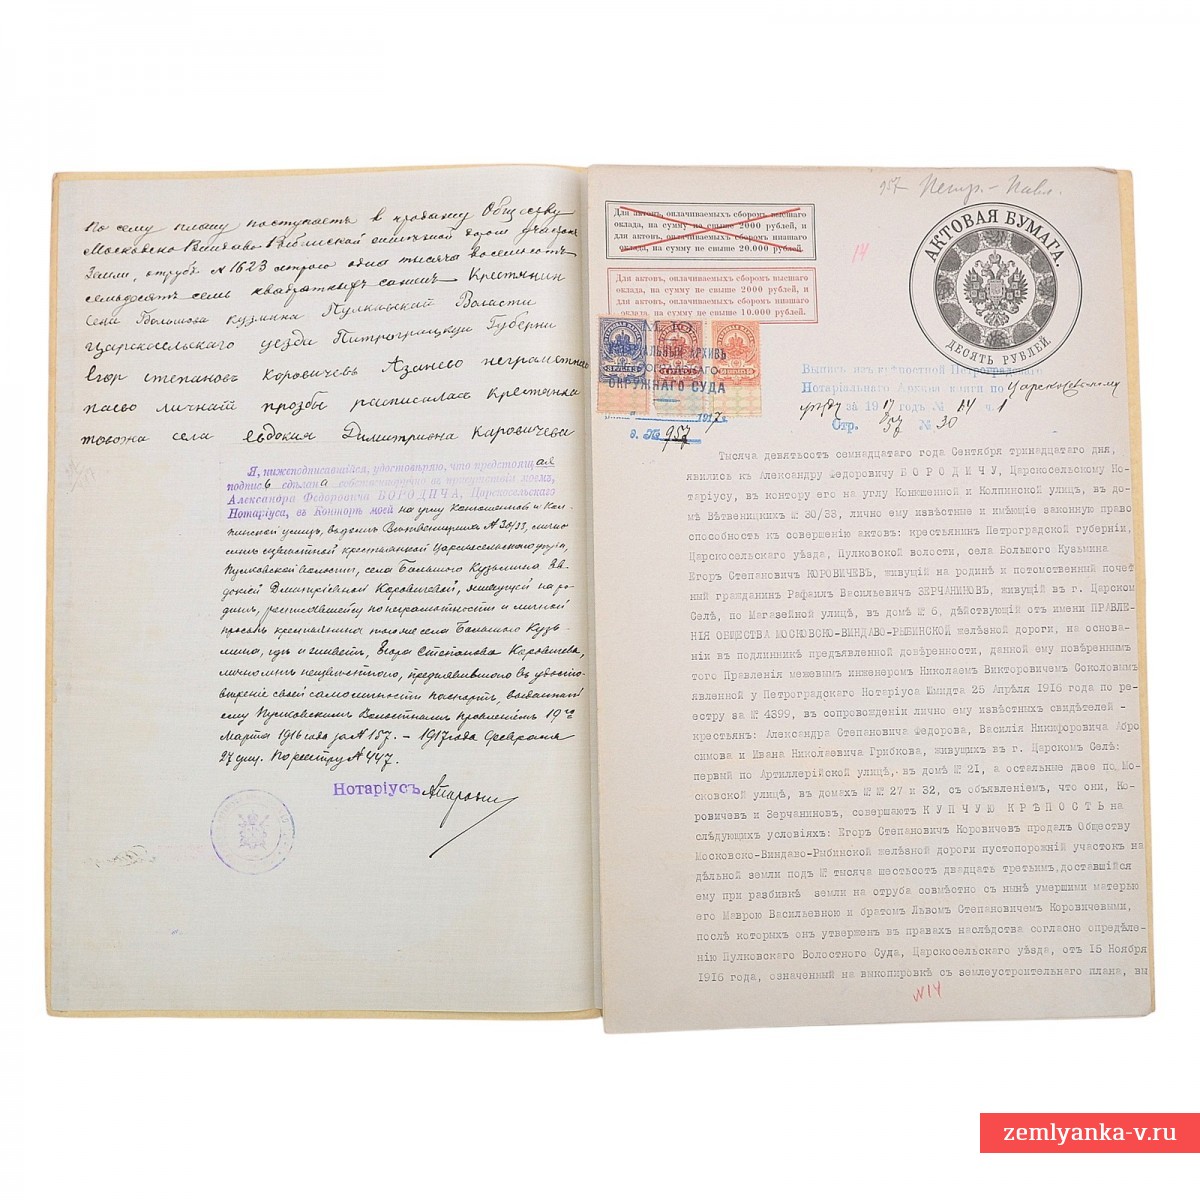 По сему плану поступаетъ в продажу Обществу
Московско Виндаво Рыбинской дорог участок
Земли, отрубъ № 1623 острого одна тысяча восемьсотъ
семьдесят семь квадратныхъ сажен Крестянин
Сена Большова кузмина Пулковской Власти
Царскосельского уезда Питроградцкуи Губерни
Егор степановъ Коровичевъ Азанево неграмотна
паево личнаiй прозбы расписалась крестянка
товожа села Евдокия Димитриона Каровичева
Я, нижеподписавшійся, удостовѣряю, что предстоящая
подпись сдѣлана собственноручно въ присутствіи моемъ,
Александра Федоровича БОРОДИЧА, Царскосельскаго
Нотаріуса, въ Конторѣ моей на углу Конюшенной и Кол-
пинской улицъ, въ домѣ № 30/33, лично
крестьянкой Царскосельского уѣзда,
Пулковской волости, села Большого Кузьмина Ев-
докіей Дмитріевной Коровичевой, живущей на ро-
динѣ, расписавшейся по неграмотности и личной
просьбѣ крестьянина того же села Большого Кузь-
мина, гдѣ и живетъ, Егора Степанова Коровичева,
лично мнѣ неизвѣстнаго, предъявившаго въ удосто-
вѣреніе своей самоличности паспортъ, выданный
ему Пулковскимъ Волостнымъ Правленіемъ 19го
Марта 1916 года за № 157. – 1917 года Февраля
27 дня. По реестру № 447.
Нотаріусъ
957 Петр.- Павл.
Для актовъ, оплачиваемыхъ сборомъ высшаго
оклада, на сумму не свыше 2000 рублей, и
для актовъ, оплачиваемыхъ сборомъ низшаго
оклада, на сумму не свыше 20.000 рублей.
14
Для актовъ, оплачиваемыхъ сборомъ высшаго
оклада, на сумму не свыше 2000 рублей, и
для актовъ, оплачиваемыхъ сборомъ низшаго
оклада, на сумму не свыше 10.000 рублей.
АКТОВАЯ БУМАГА.
ДЕСЯТЬ РУБЛЕЙ.
М. Ю.
АРХИВЪ
ОКРУЖНАГО СУДА
1917 г.
д. № 957
Выпись изъ крѣпостной Петроградскаго
Нотаріальнаго Архива книги по Царскосельскому
уѣзду за 1917 годъ № 14 ч. 1
Стр. 57 № 30
Тысяча девятьсотъ семнадцатаго года Сентября тринадцатаго дня,
явились къ Александру Федоровичу БОРОДИЧУ, Царскосельскому Но-
таріусу, въ контору его на углу Конюшенной и Колпинской улицъ, въ до-
мѣ Вѣтвеницкихъ № 30/33, лично ему извѣстные и имѣющіе законную право
способность къ совершенію актовъ: крестьянинъ Петроградской губерніи,
Царскосельскаго уѣзда, Пулковской волости, села Большого Кузьмина
Егоръ Степановичъ КОРОВИЧЕВЪ, живущій на родинѣ и потомственный почет
ный гражданинъ Рафаилъ Васильевичъ ЗЕРЧАНИНОВЪ, живущій въ г. Царскомъ
Селѣ, по Магазейной улицѣ, въ домѣ № 6, дѣйствующій отъ имени ПРАВЛЕ-
НІЯ ОБЩЕСТВА МОСКОВСКО-ВИНДАВО-РЫБИНСКОЙ желѣзной дороги, на основа-
ніи въ подлинникѣ предъявленной довѣренности, данной ему повѣреннымъ
того Правленія межевымъ инженеромъ Николаемъ Викторовичемъ Соколовымъ
явленной у Петроградскаго Нотаріуса Шмидта 25 Апрѣля 1916 года по ре-
естру за № 4399, въ сопровожденіи лично ему извѣстныхъ свидѣтелей -
крестьянъ: Александра Степановича Федорова, Василія Никифоровича Абро
симова и Ивана Николаевича Грибкова, живущихъ въ г. Царскомъ Селѣ:
первый по Артиллерійской улицѣ, въ домѣ № 21, а остальные двое по Мо-
сковской улицѣ, въ домахъ №№ 27 и 32, съ объявленіемъ, что они, Ко-
ровичевъ и Зерчаниновъ, совершаютъ КУПЧУЮ КРѢПОСТЬ на
слѣдующихъ условіяхъ: Егоръ Степановичъ Коровичевъ продалъ Обществу
Московско-Виндаво-Рыбинской желѣзной дороги пустопорожній участокъ на
дѣльной земли подъ № тысяча шестьсотъ двадцать третьимъ, доставшійся
ему при разбивкѣ земли на отруба совмѣстно съ нынѣ умершими матерью
его Маврою Васильевною и братомъ Львомъ Степановичемъ Коровичевыми,
послѣ которыхъ онъ утвержденъ въ правахъ наслѣдства согласно опредѣле-
нію Пулковскаго Волостного Суда, Царскосельскаго уѣзда, отъ 15 Ноября
1916 года, означенный на выкопировкѣ съ землеустроительнаго плана, вы
№14
zemlyanka-v.ru